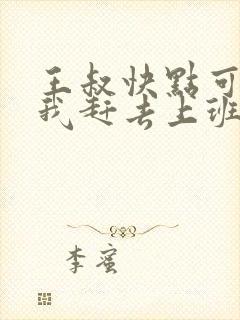 王叔快點可
我赶去上班
李蜜